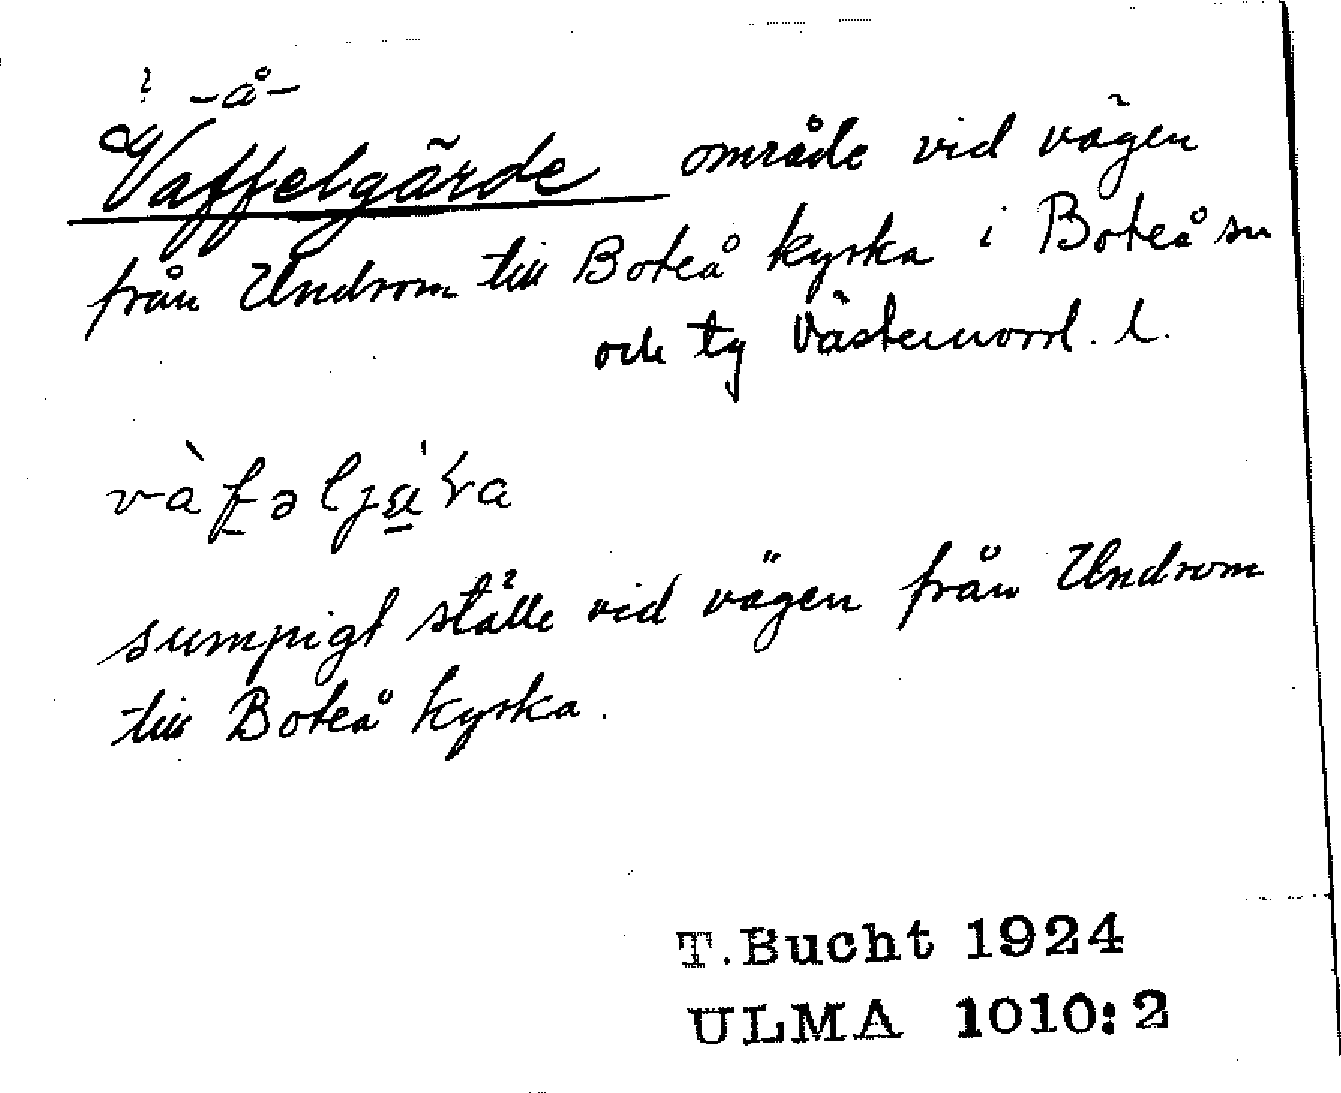 ? -å-
Vaffelgärde område vid vägen
från Undrom till Boteå kyrka i Boteå sn
och tg Västernorrl. l.
vàfəljæ̀ra
sumpigt ställe vid vägen från Undrom
till Boteå kyrka.
T. Bucht 1924
ULMA 1010:2